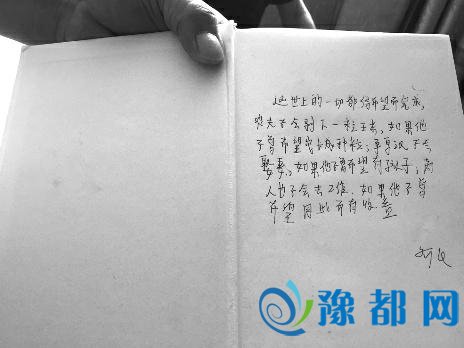 这世上的一切都借希望而完成,
农夫不会剥下一粒玉米,如果他
不曾希望它长成种粒;单身汉不会
娶妻,如果他不曾希望有孩子;商
人也不会去工作,如果他不曾
希望因此而有收益
豫都网